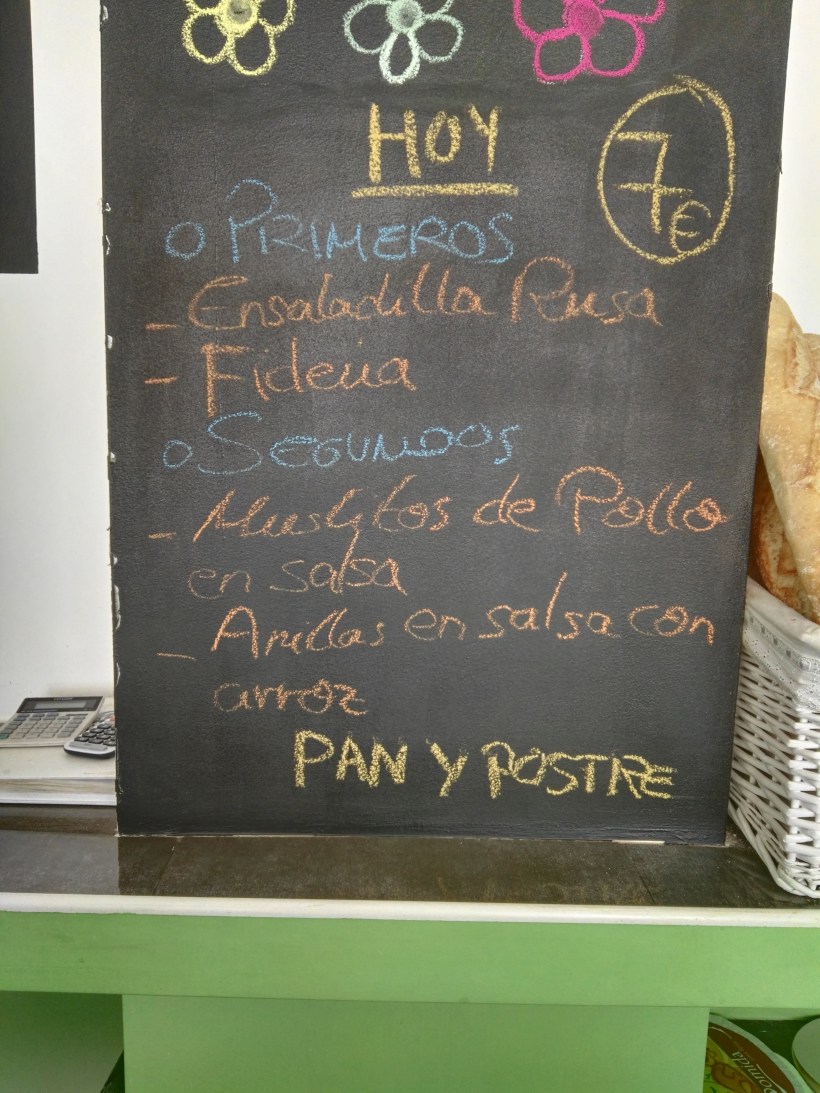 HOY
7€
o PRIMEROS
- Ensaladilla Rusa
- Fideua
o SEGUNDOS
- Muslitos de Pollo
en salsa
- Anillas en salsa con
arroz
PAN Y POSTRE
Comida